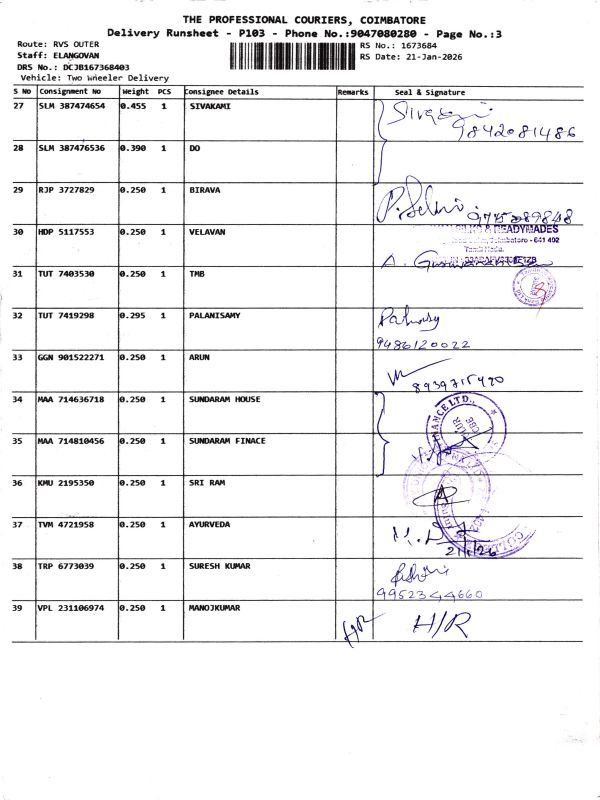 THE PROFESSIONAL COURIERS, COIMBATORE
Delivery Runsheet - P103 - Phone No.:9047080280 - Page No.:3
Route: RVS OUTER
RS No.: 1673684
Staff: ELANGOVAN
RS Date: 21-Jan-2026
DRS No.: DCJB167368403
Vehicle: Two Wheeler Delivery
S No Consignment No Weight PCS Consignee Details Remarks Seal & Signature
27 SLM 387474654 0.455 1 SIVAKAMI
9842081486
28 SLM 387476536 0.390 1 DO
29 RJP 3727829 0.250 1 BIRAVA
30 HDP 5117553 0.250 1 VELAVAN
& READYMADES
Coimbatore - 641 402
31 TUT 7403530 0.250 1 TMB
32 TUT 7419298 0.295 1 PALANISAMY
9486120022
33 GGN 901522271 0.250 1 ARUN
8939715490
34 MAA 714636718 0.250 1 SUNDARAM HOUSE
35 MAA 714810456 0.250 1 SUNDARAM FINACE
36 KMU 2195350 0.250 1 SRI RAM
37 TVM 4721958 0.250 1 AYURVEDA
38 TRP 6773039 0.250 1 SURESH KUMAR
9952344660
39 VPL 231106974 0.250 1 MANOJKUMAR H/R H/R